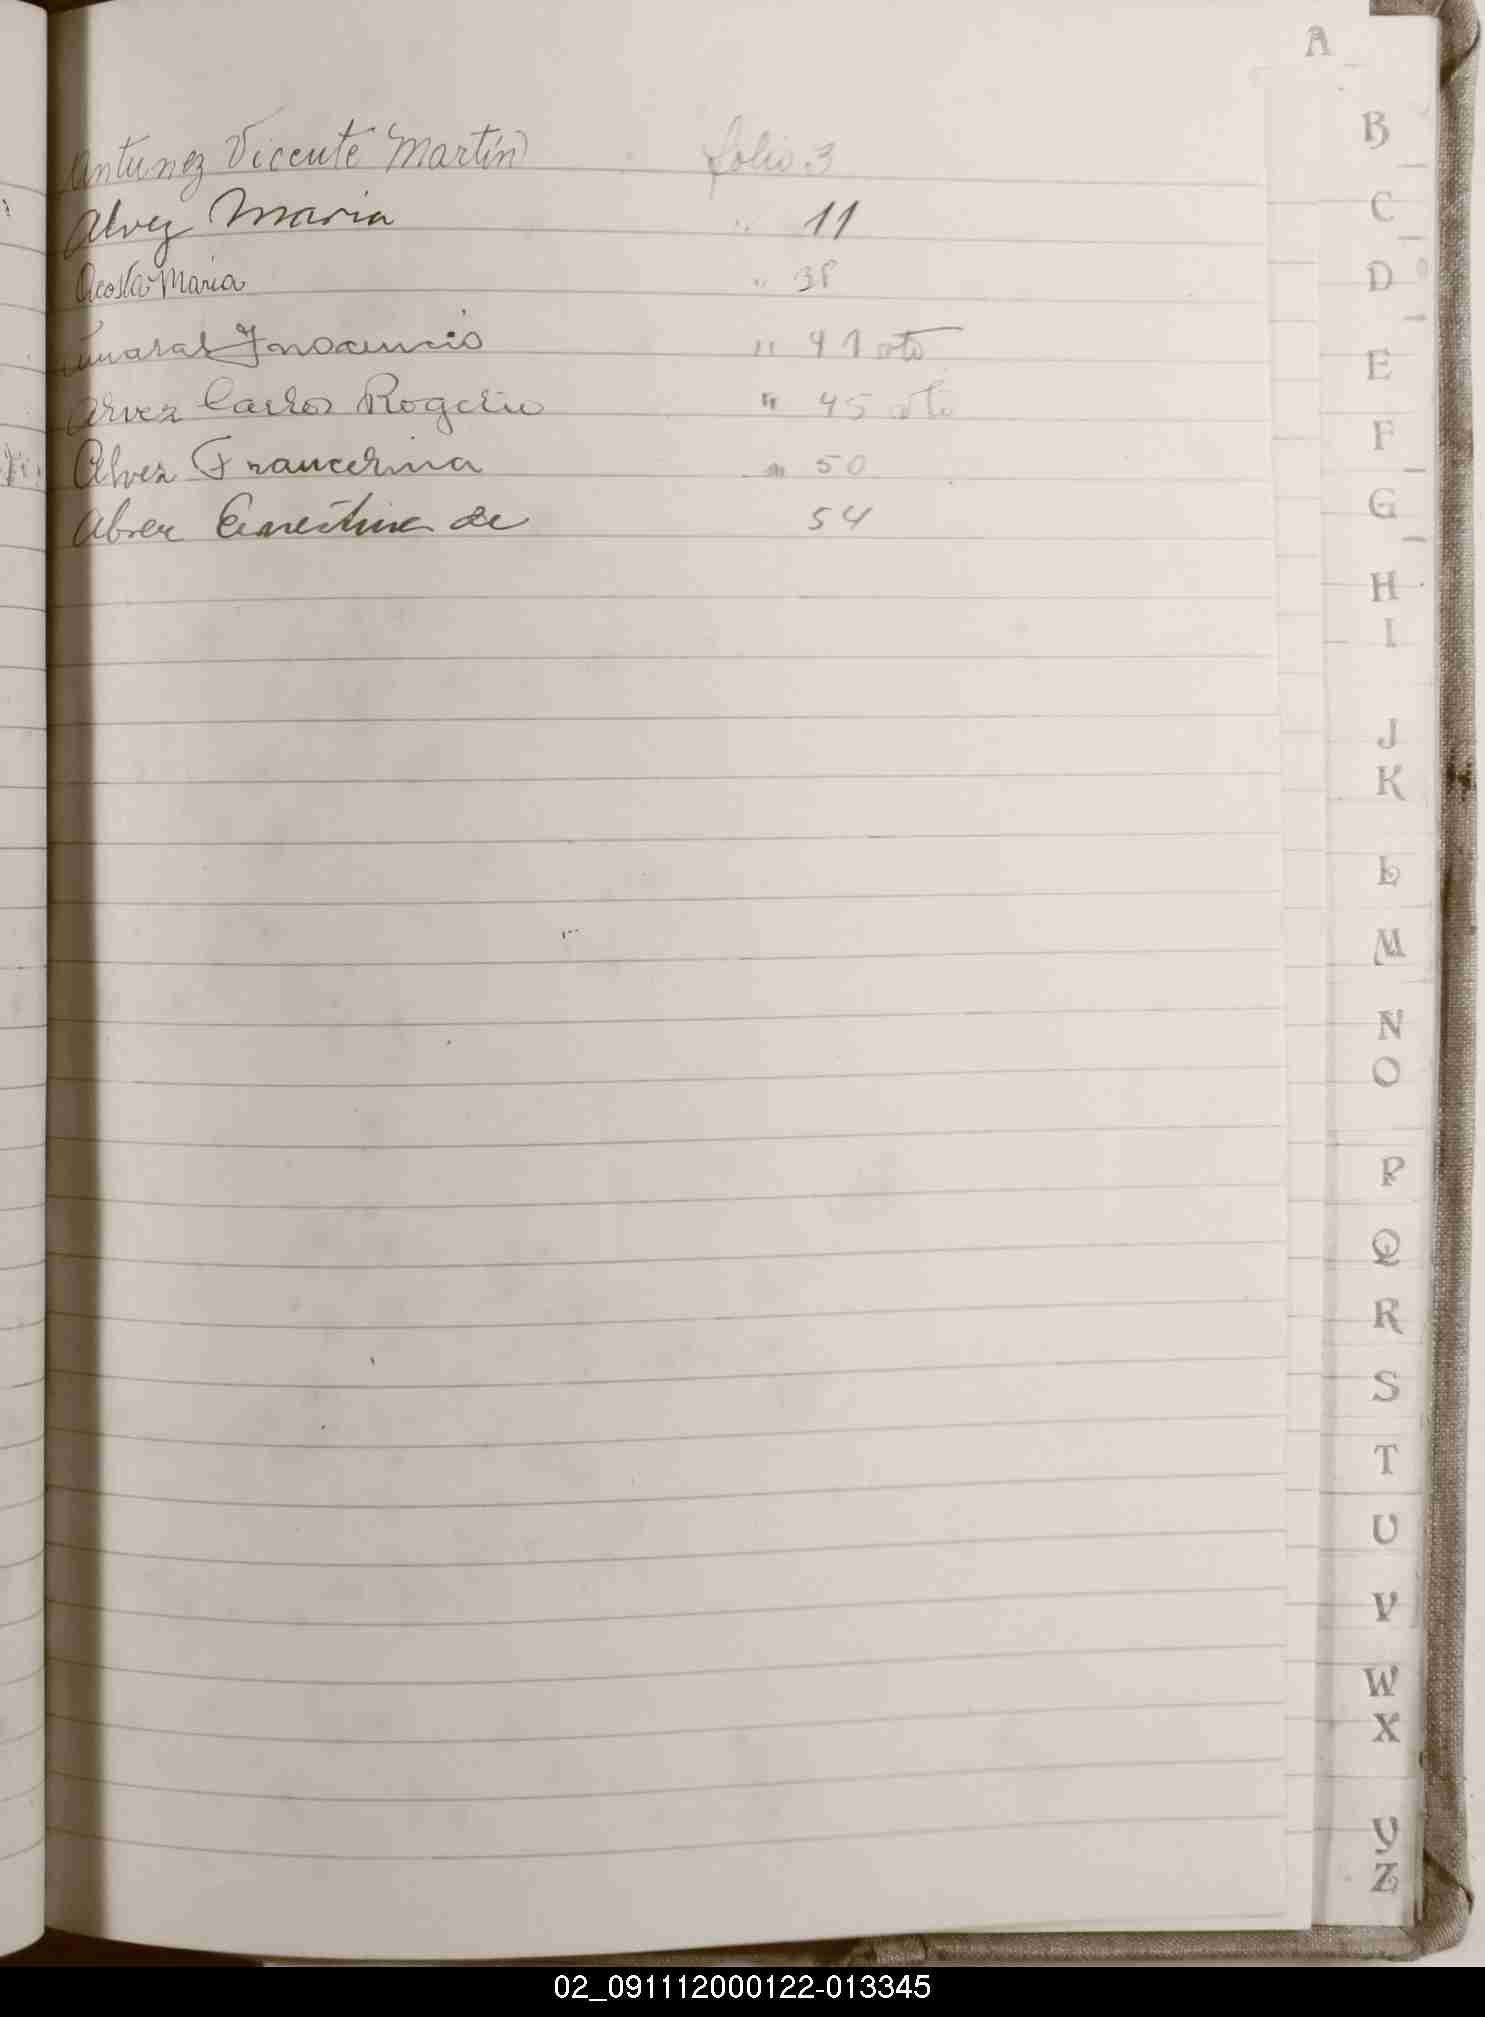 A
Antunez Vicente Martín folio 3
Alvez Maria " 11
Acosta Maria " 38
Amaral Inocencio " 41 vto
Alvez Carlos Rogelio " 45 vto
Alvez Francelina " 50
Abreu Ernestina de 54
B
C
D
E
F
G
H
I
J
K
L
M
N
O
P
Q
R
S
T
U
V
W
X
Y
Z
02_091112000122-013345